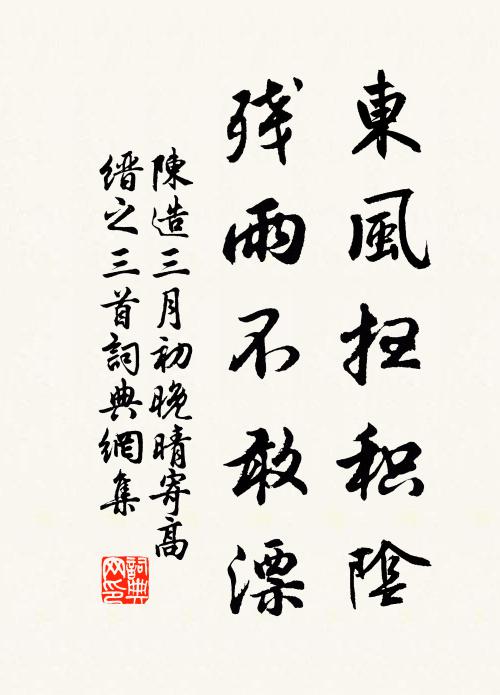 東風扫积陰
残雨不敢漂
陳造三月初晚晴寄高
缙之三首詞典網集
詞典
网印